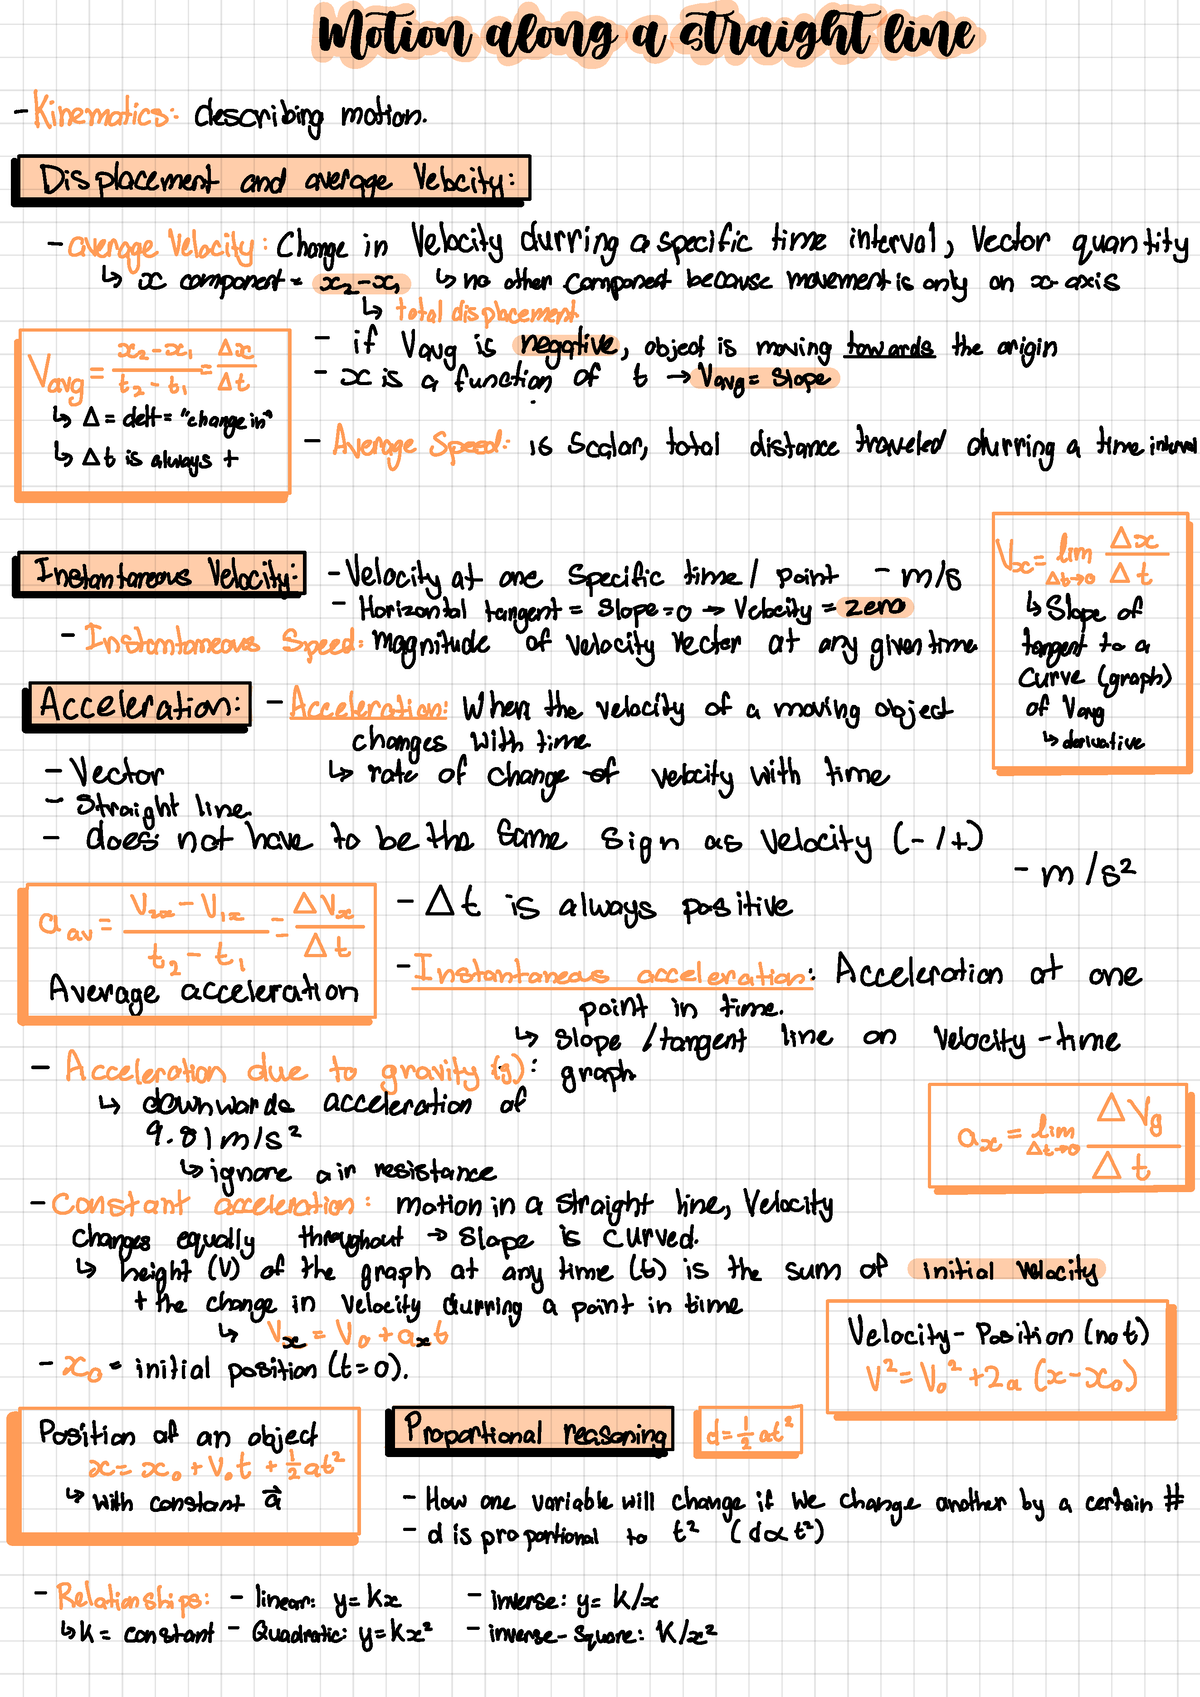 Motion along a straight line
- Kinematics: describing motion.
Displacement and average Velocity:
- average Velocity: Change in Velocity durring a specific time interval, Vector quantity
↳ x component = x₂-x₁ ↳ no other component because movement is only on x-axis
↳ total displacement
- if Vavg is negative, object is moving towards the origin
- x is a function of t → Vavg = Slope
Vavg = x₂-x₁/t₂-t₁ = Δx/Δt
↳ Δ = delt = "change in"
↳ Δt is always +
- Average Speed: is Scalar, total distance traveled durring a time interval
Instantaneous Velocity:
- Velocity at one Specific time / point - m/s
- Horizontal tangent = Slope = 0 → Velocity = zero
- Instantaneous Speed: magnitude of velocity vector at any given time
Vx = lim Δt→0 Δx/Δt
↳ Slope of
tangent to a
Curve (graph)
of Vavg
↳ derivative
Acceleration:
- Acceleration: When the velocity of a moving object
changes with time
↳ rate of change of velocity with time
- Vector
- Straight line
- does not have to be the Same Sign as Velocity (- / +)
- m/s²
a av = V₂x - V₁x / t₂ - t₁ = ΔVx/Δt
Average acceleration
- Δt is always positive
- Instantaneous acceleration: Acceleration at one
point in time.
↳ slope / tangent line on Velocity-time
graph
- Acceleration due to gravity (g):
↳ downwards acceleration of
9.81 m/s²
↳ ignore air resistance
ax = lim Δt→0 ΔVg/Δt
- Constant acceleration: motion in a straight line, Velocity
changes equally throughout → Slope is curved.
↳ height (V) of the graph at any time (t) is the sum of initial velocity
+ the change in Velocity durring a point in time
↳ Vx = V₀ + axt
- x₀ = initial position (t=0).
Velocity-Position (no t)
V² = V₀² + 2a (x-x₀)
Position of an object
x = x₀ + V₀t + ½at²
↳ with constant a⃗
Proportional reasoning
d = ½ at²
- How one variable will change if we change another by a certain #
- d is proportional to t² (d∝t²)
- Relationships: - linear: y = kx - inverse: y = k/x
↳ k = constant - Quadratic: y = kx² - inverse-square: k/x²